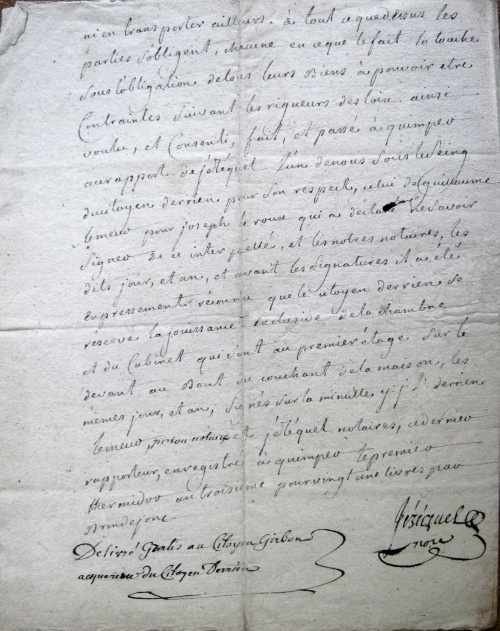 ni en transporter ailleurs. à tout ce que dessus les
parties s'obligent, chacune en ce que le fait la touche
sous l'obligation de tous leurs Biens à pouvoir etre
Contraintes suivant les rigueurs des loix. ainsi
voulu, et Consenti, fait, et passé à quimper
au rapport de jézéquel l'un de nous sous le seing
du citoyen derrien pour son respect, celui de guillaume
lemeur pour joseph le rouse qui a declaré ne savoir
signer de ce interpellé, et les notres notaires, les
dits jour, et an, et avant les signatures il a été
expressement reconnu que le citoyen derrien se
reserve la jouissance exclusive de la chambre
et du Cabinet qui sont au premier etage sur le
devant au Bout du couchant de la maison, les
memes jour, et an, signés sur la minutte y. j. derrien
lemeur, notaire et jézéquel notaires, ce dernier
rapporteur, enregistré à quimper le premier
thermidor an troisieme pour vingt une livres par
Brindejonc.
Delivré Gratis au Citoyen Girbon
acquereur du Citoyen Derrien
Jézéquel
nore